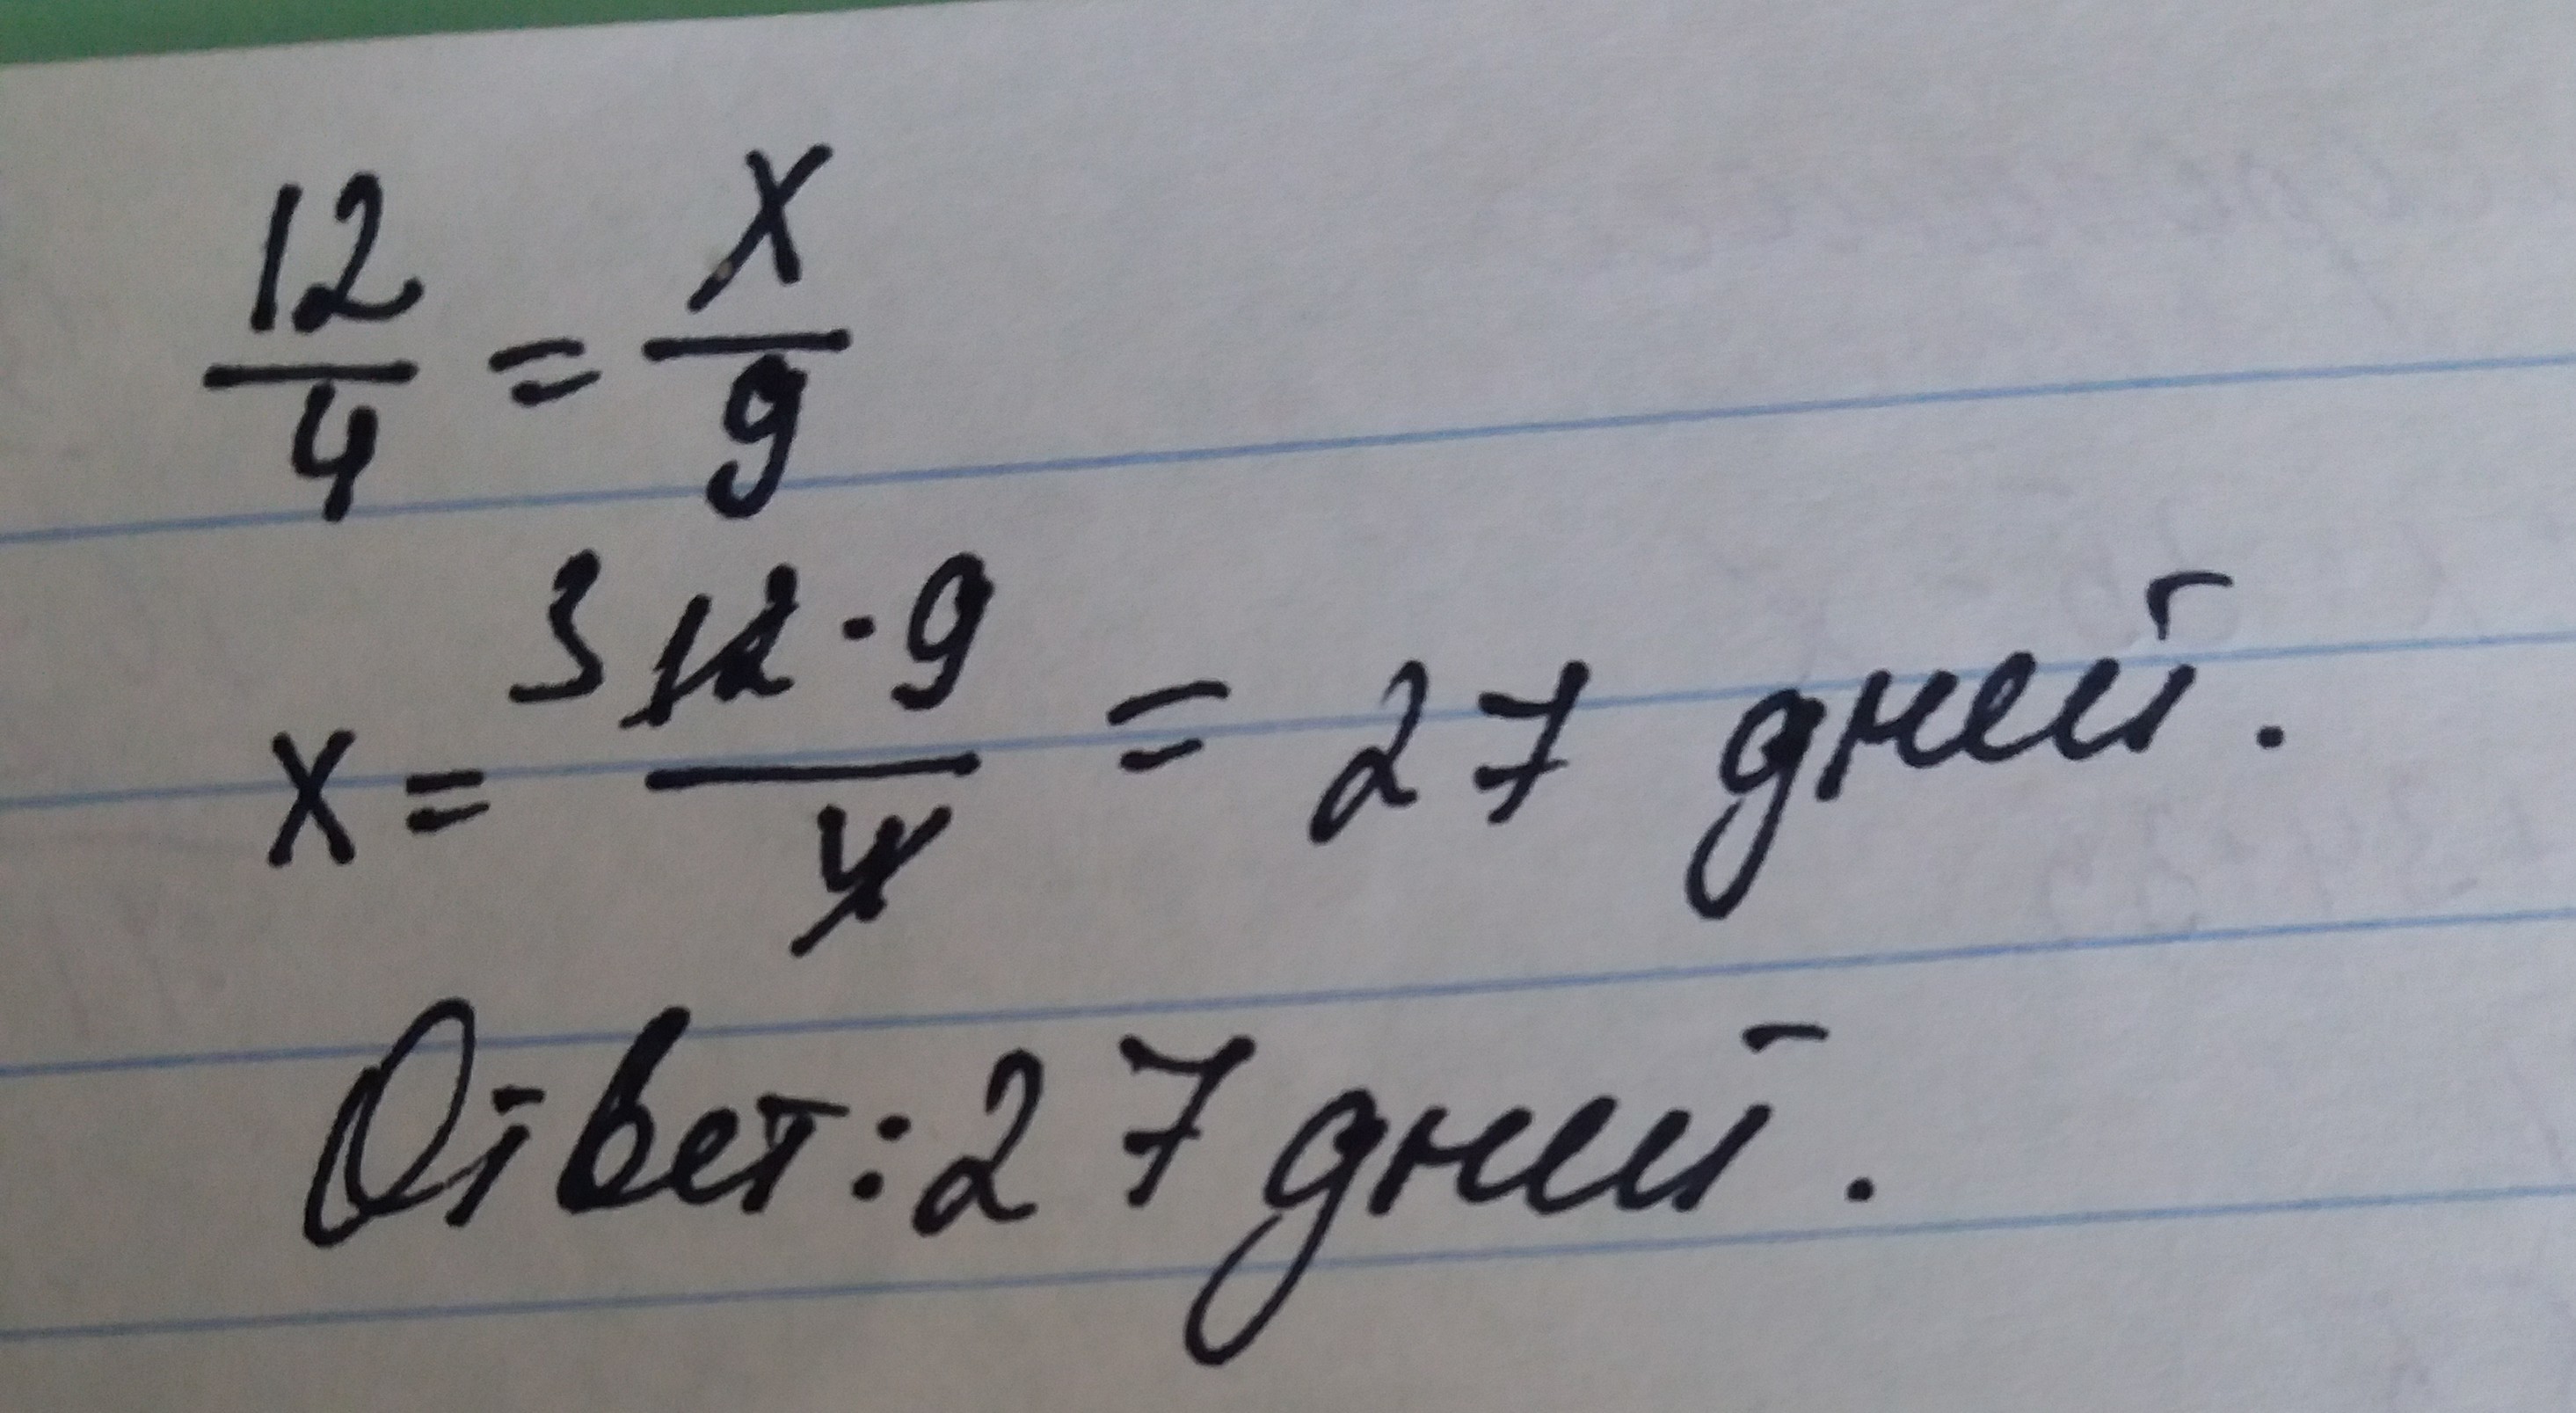 12/4 = x/9
x = 3 12 · 9 / 4 = 27 дней.
Ответ: 27 дней.